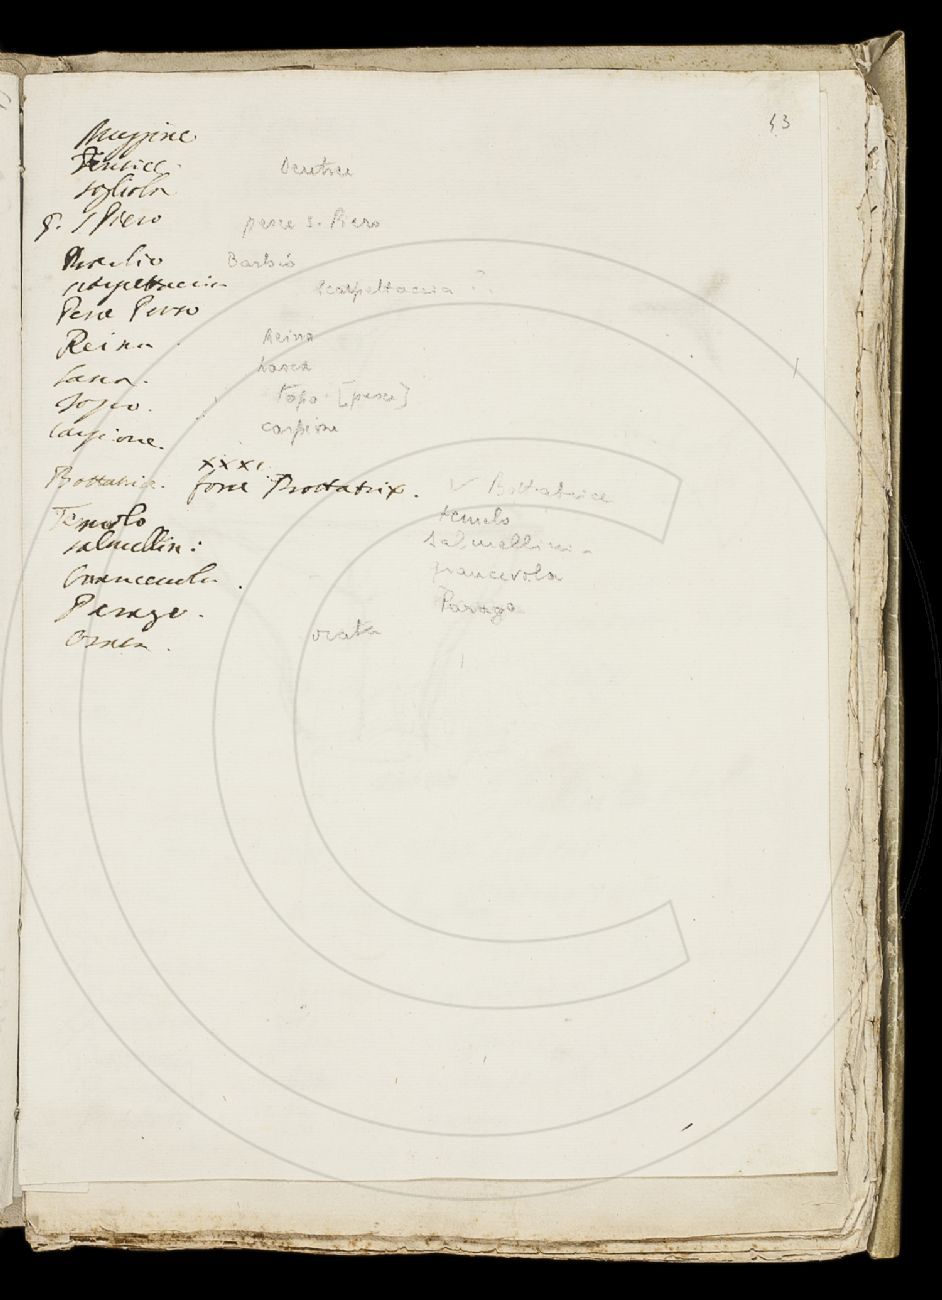 53
Muggine
Dentice. Dentice
sogliola
P. S Piero pesce S. Piero
Barbio Barbio
scarpettaccia ?
Pesce Perso
Reina Reina
Lasca. Lasca
Topo. Topo [pesce]
Carpione. carpione
XXXI.
Bottatrice. forse Bottatrix. v Bottatrice
Temolo temolo
salmellini: Salmellini
Grancevola. grancevola
Parago. Parago
Orata. orata